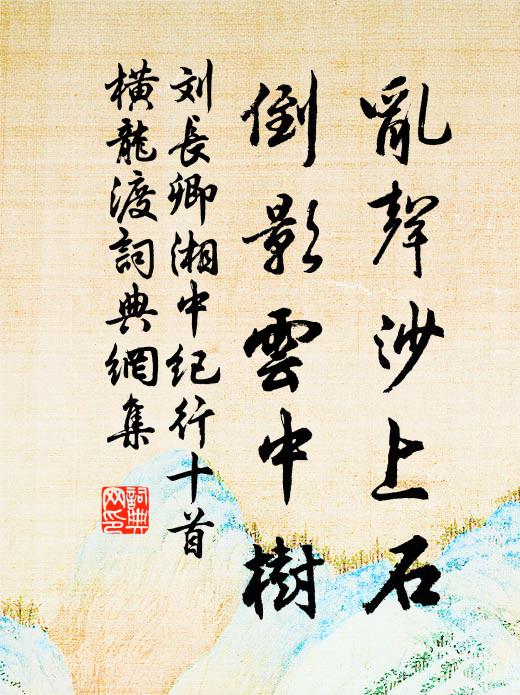 亂聲沙上石
倒影雲中樹
刘長卿湘中纪行十首
橫龍渡詞典網集
詞典网印